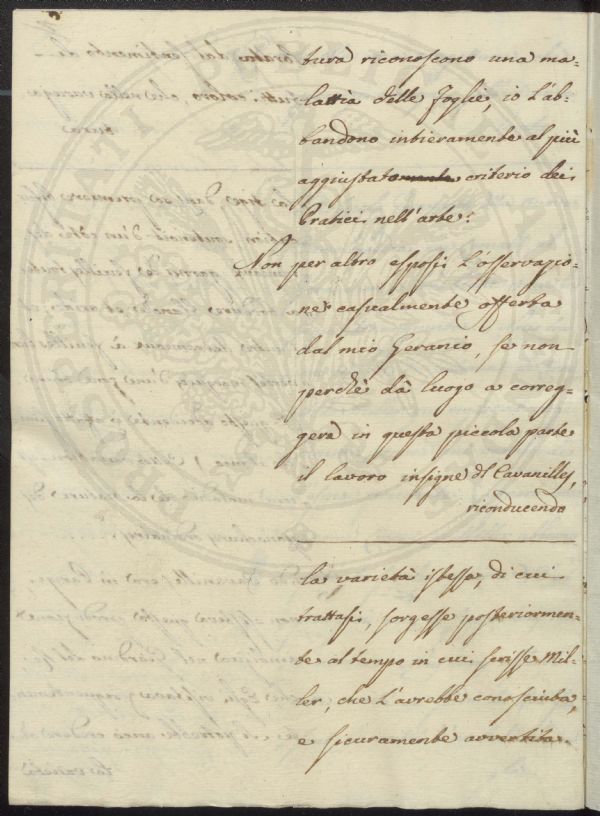 tura riconoscono una ma-
lattia delle foglie, io l'ab-
bandono intieramente al più
aggiustatomente criterio dei
Pratici nell'arte.
Non per altro esposi l'osservazio-
ne casualmente offerta
dal mio Geranio, se non
perchè dà luogo a correg-
gere in questa piccola parte
il lavoro insigne di Cavanilles,
riconducendo
la varietà istessa, di cui
trattasi, sorgesse posteriormen-
te al tempo in cui scrisse Mil-
ler, che l'avrebbe conosciuta,
e sicuramente avvertita.